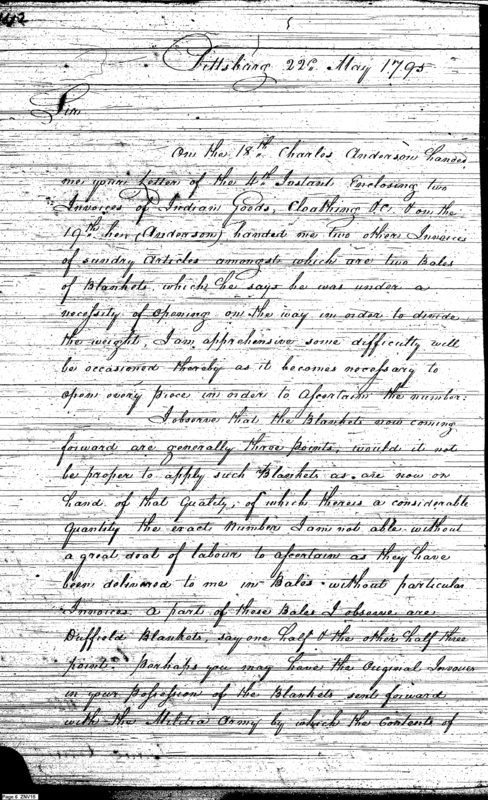 142
Pittsburg 22d. May 1795
Sir
On the 18th. Charles Anderson handed
me your Letter of the 4th Instant, Enclosing two
Invoices of Indian Goods, Cloathing &c. & on the
19th. he (Anderson) handed me two other Invoices
of sundry articles amongst which are two Bales
of Blankets, which he says he was under a
necessity of opening on the way in order to divide
the weight, I am apprehensive some difficulty will
be occasioned thereby as it becomes necessary to
open every piece in order to ascertain the number:
I observe that the Blankets now coming
forward are generally three points, would it not
be proper to apply such Blankets as are now on
hand of that Quality, of which there is a considerable
Quantity the exact Number I am not able without
a great deal of labour to ascertain as they have
been delivered to me in Bales without particular
Invoices. a part of these Bales I observe are
Duffield Blankets, say one half & the other half three
point. Perhaps you may have the Original Invoices
in your Possession of the Blankets sent forward
with the Militia Army by which the Contents of
Page 6 ZNV16